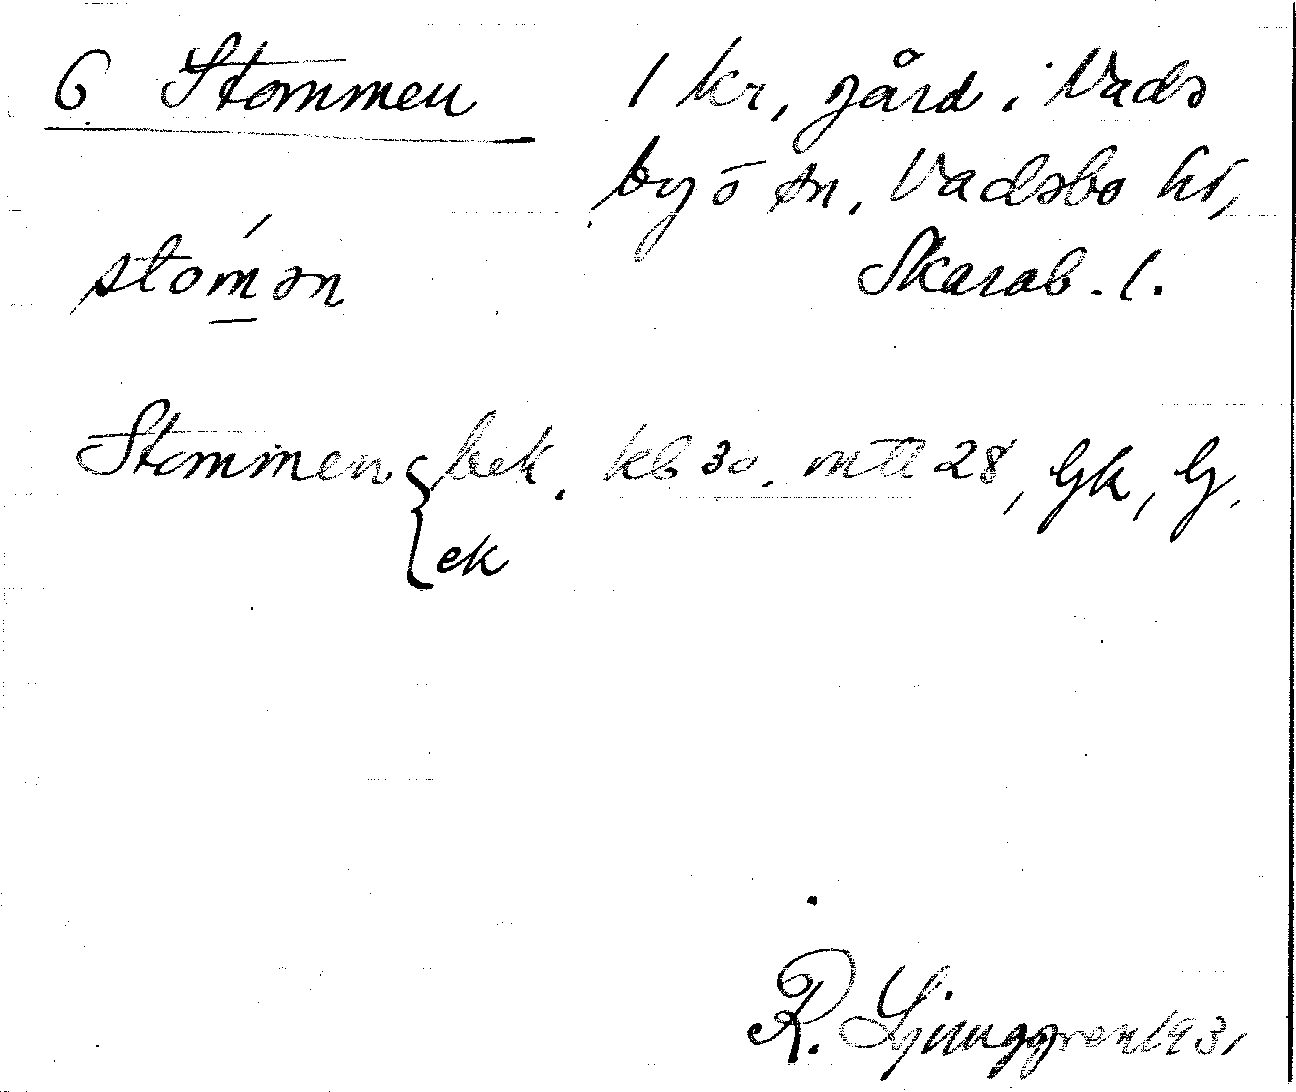 6 Stommen 1 kr, gård i Vads
byö sn, Vadsbo hd,
stomən Skarab. l.
Stommen { bek, kb 30, mtl 28, Gk, G,
ek
R. Ljunggren 1931